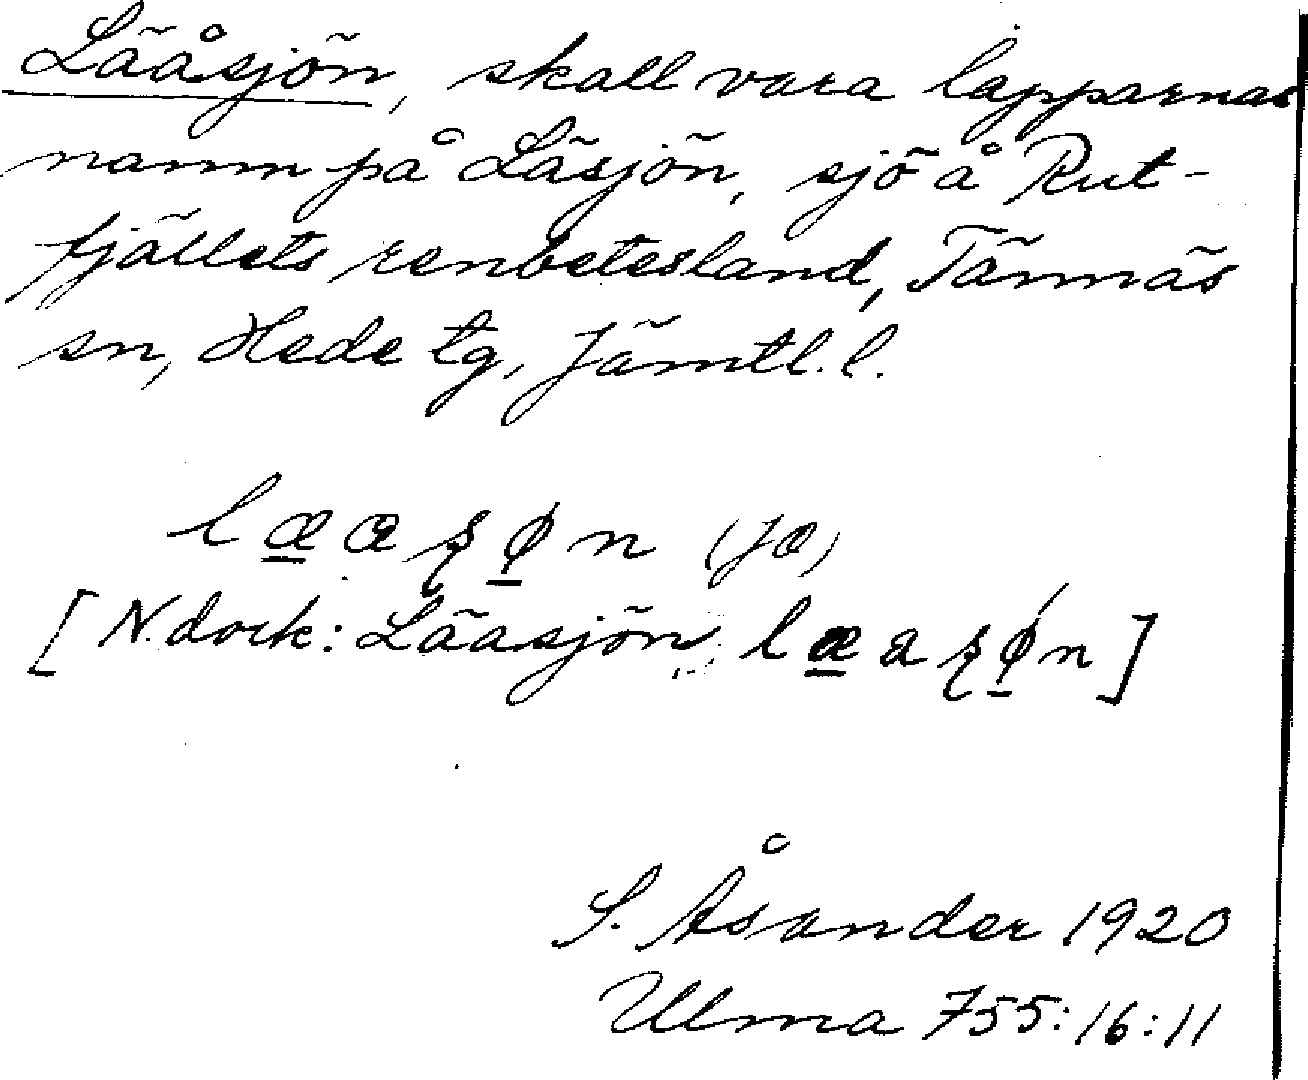 Lääsjön, skall vara lapparnas
namn på Läsjön, sjö å Rut-
fjällets renbetesland, Tännäs
sn, Hede tg, Jämtl. l.
[N. dock: Lääsjön,
S. Åsander 1920
Ulma 755:16:11